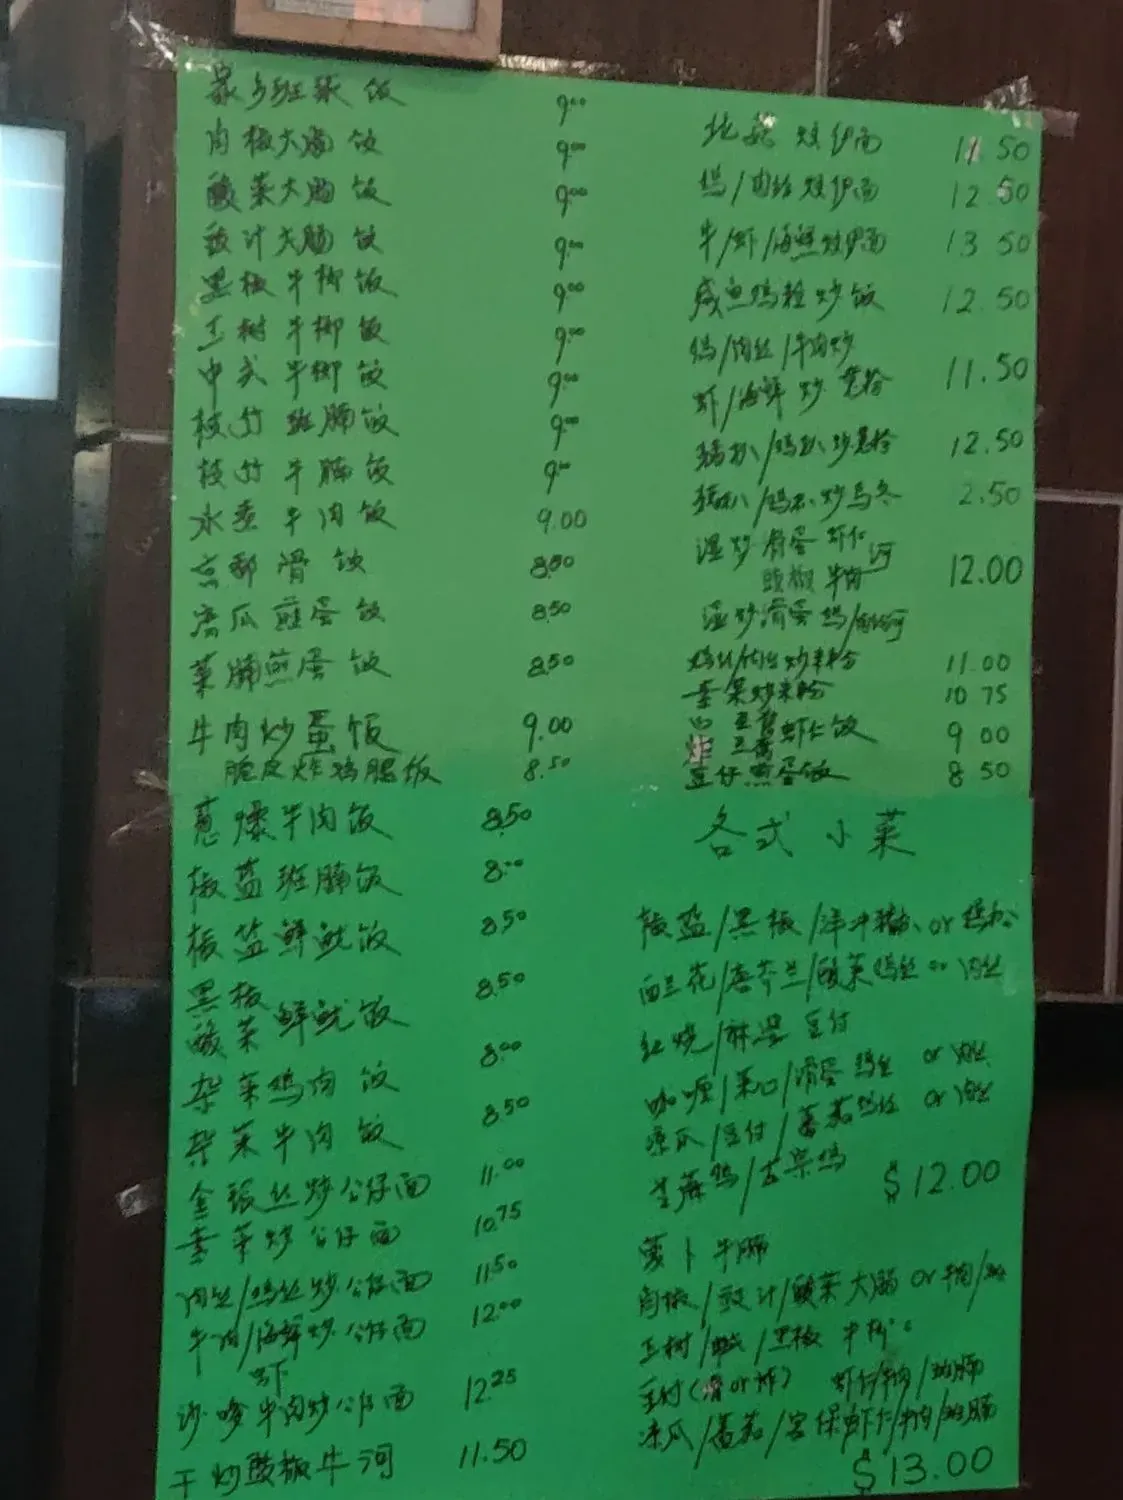 家乡班球饭 9.00
肉椒大肠饭 9.00
酸菜大肠饭 9.00
豉汁大肠饭 9.00
黑椒牛柳饭 9.00
玉树牛柳饭 9.00
中式牛柳饭 9.00
枝竹班腩饭 9.00
枝竹牛腩饭 9.00
水煮牛肉饭 9.00
京都滑饭 8.50
凉瓜煎蛋饭 8.50
菜脯煎蛋饭 8.50
牛肉炒蛋饭 9.00
脆皮炸鸡腿饭 8.50
葱爆牛肉饭 8.50
椒盐班腩饭 8.00
椒盐鲜鱿饭 8.50
黑椒
酸菜鲜鱿饭 8.50
杂菜鸡肉饭 8.00
杂菜牛肉饭 8.50
金银丝炒公仔面 11.00
素菜炒公仔面 10.75
肉丝/鸡丝炒公仔面 11.50
牛肉/海鲜炒公仔面 12.00
虾
沙嗲牛肉炒公仔面 12.25
干炒豉椒牛河 11.50
北菇炆伊面 11.50
鸡/肉丝炆伊面 12.50
牛/虾/海鲜炆伊面 13.50
咸鱼鸡粒炒饭 12.50
鸡/肉丝/牛肉炒
虾/海鲜炒 11.50
猪扒/鸡扒炒 12.50
猪扒/鸡扒炒乌冬 2.50
湿炒滑蛋虾仁河
豉椒牛肉 12.00
湿炒滑蛋鸡/肉丝河
鸡丝/肉丝炒米粉 11.00
素菜炒米粉 10.75
炸豆腐虾仁饭 9.00
豆仔煎蛋饭 8.50
各式小菜
椒盐/黑椒/洋冲猪扒 or 鸡扒
西兰花/唐芥兰/酸菜鸡丝 or 肉丝
红烧/麻婆豆付
咖喱/菜心/滑蛋鸡丝 or 肉丝
凉瓜/豆付/蕃茄鸡丝 or 肉丝
姜葱鸡/古老鸡
$12.00
萝卜牛腩
肉椒/豉汁/酸菜大肠 or 牛肉/
玉树/中式/黑椒牛柳
豆付(滑or炸) 虾仁/牛肉/班腩
凉瓜/蕃茄/宫保虾仁/牛肉/班腩
$13.00